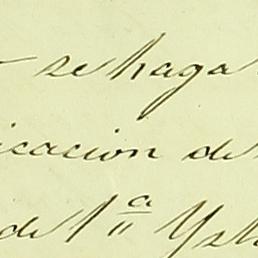 se haga
icacion de
de 1ª Yst